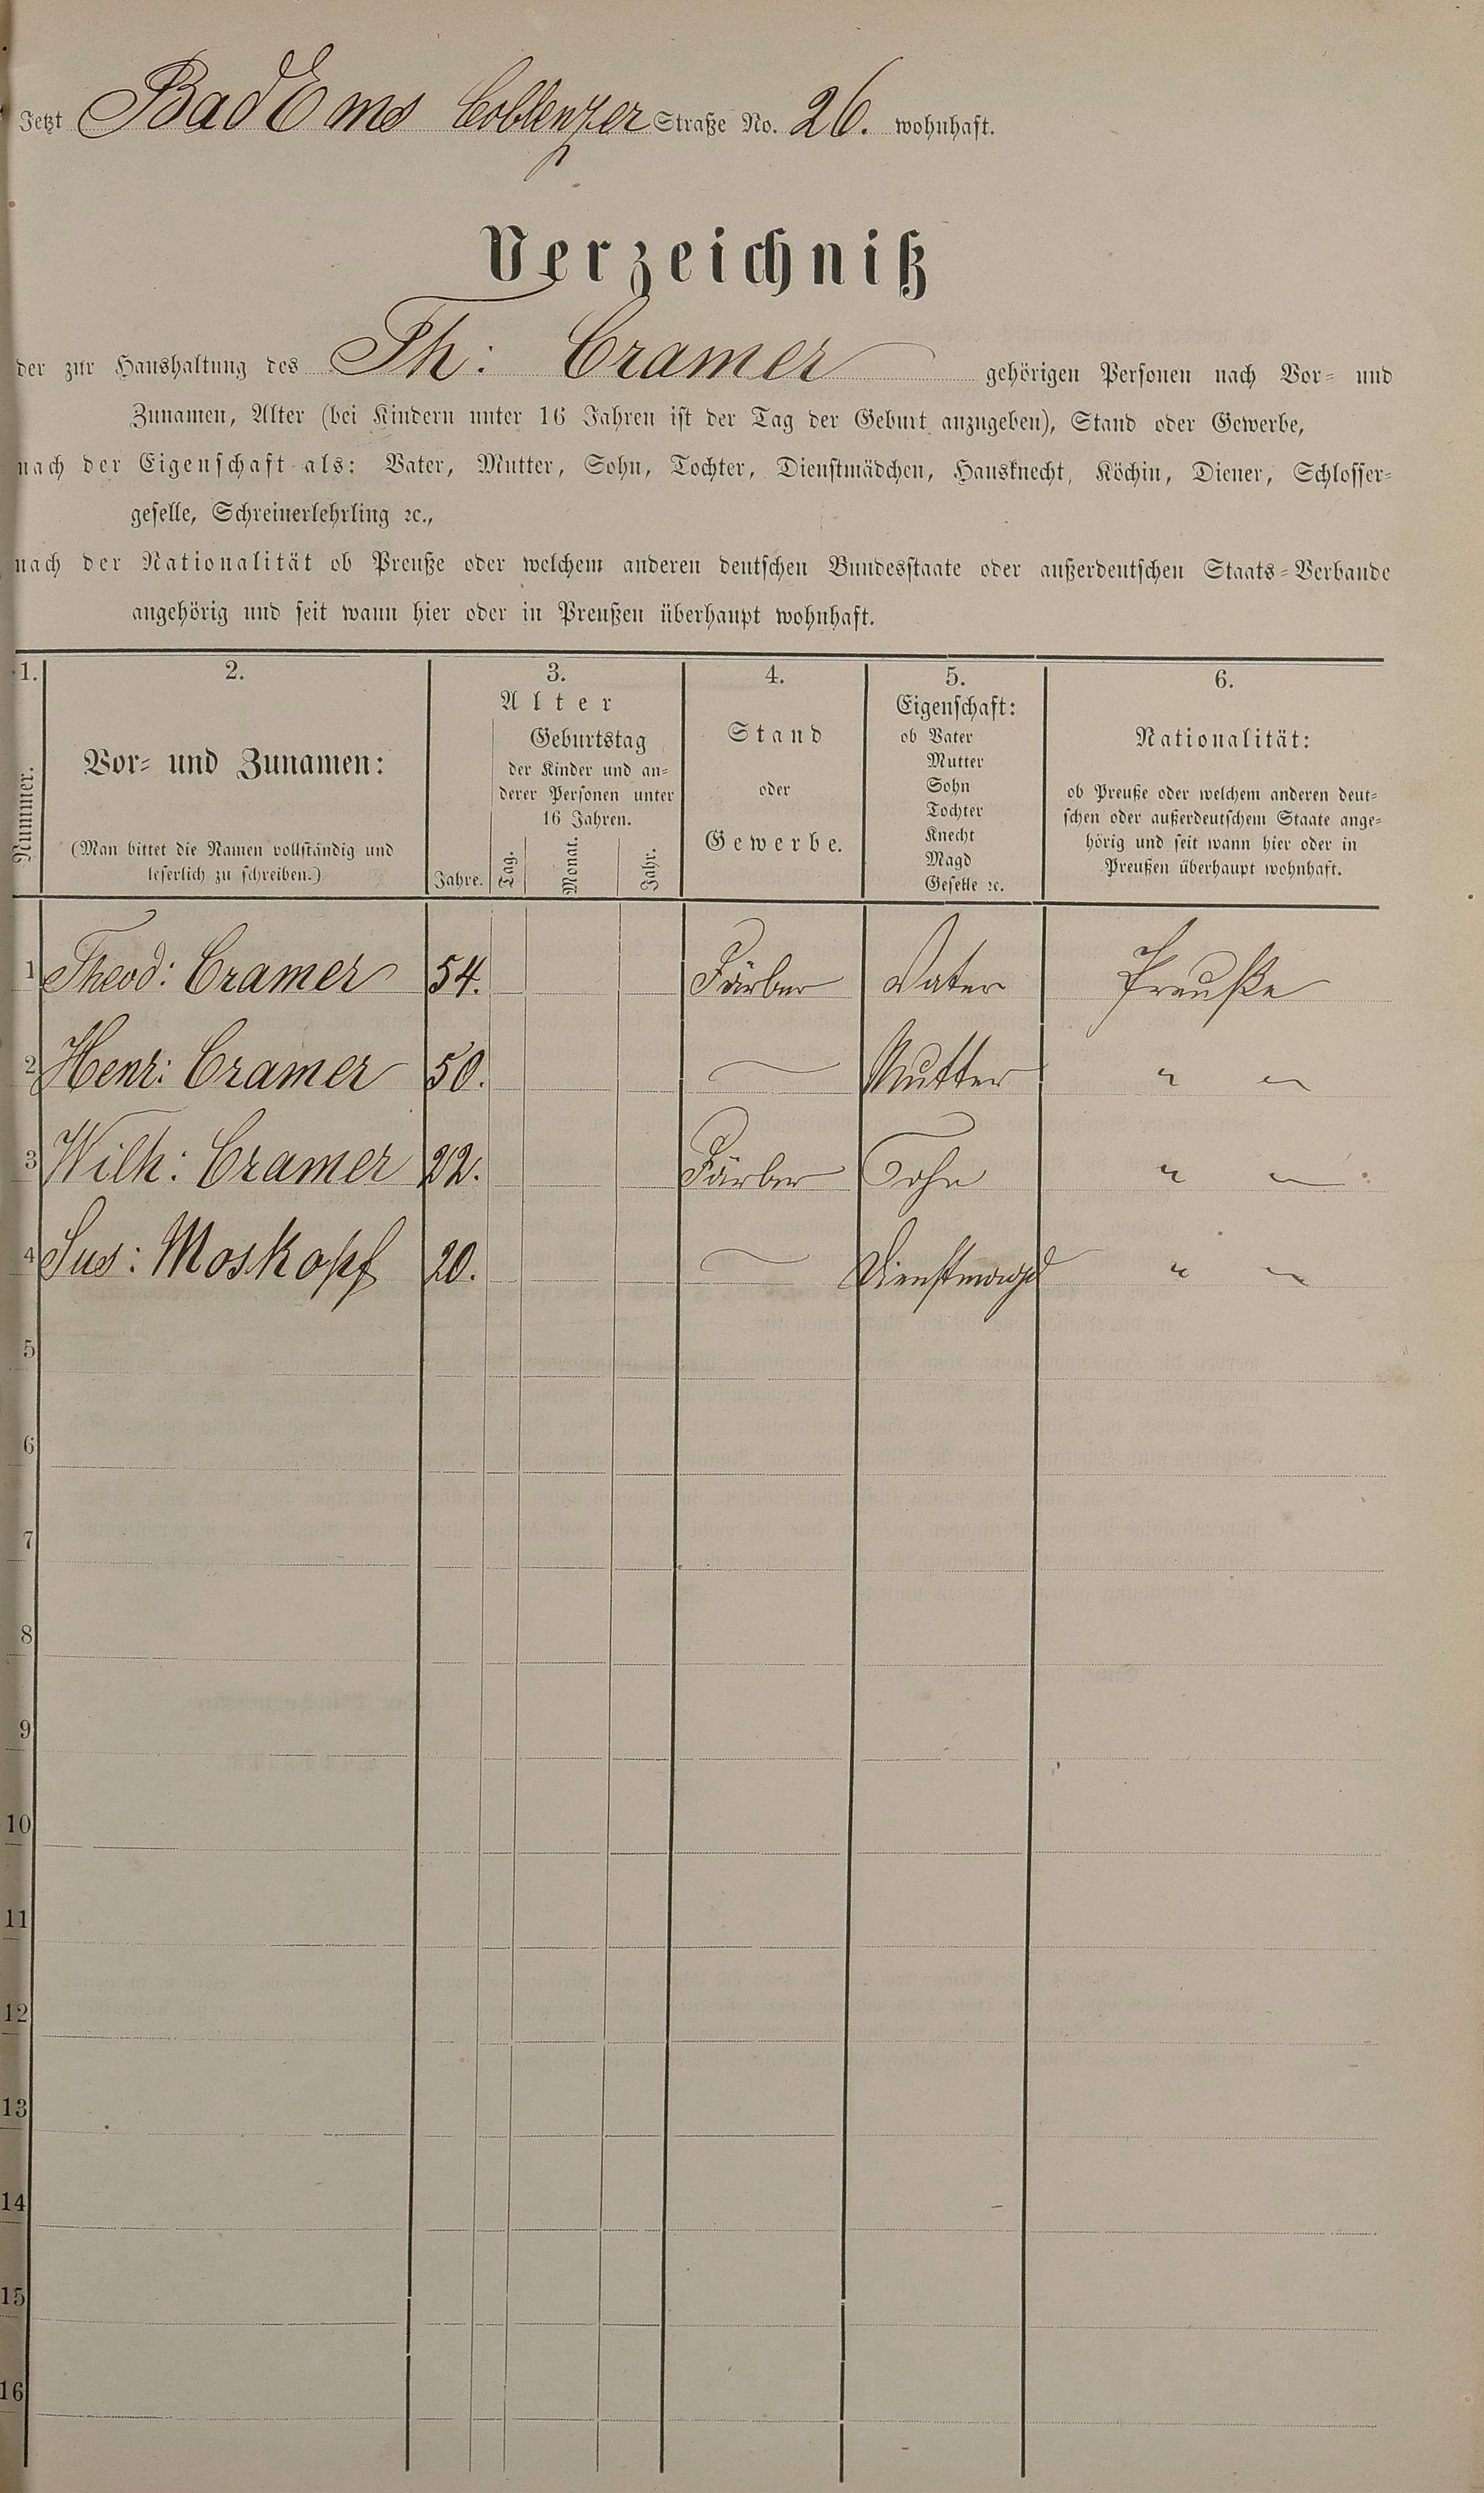 Jetzt Bad Ems Coblenzer Straße No. 26. wohnhaft.
Verzeichniß
der zur Haushaltung des Th: Cramer gehörigen Personen nach Vor- und
Zunamen, Alter (bei Kindern unter 16 Jahren ist der Tag der Geburt anzugeben), Stand oder Gewerbe,
nach der Eigenschaft als: Vater, Mutter, Sohn, Tochter, Dienstmädchen, Hausknecht, Köchin, Diener, Schlosser-
geselle, Schreinerlehrling ꝛc.,
nach der Nationalität ob Preuße oder welchem anderen deutschen Bundesstaate oder außerdeutschen Staats-Verbande
angehörig und seit wann hier oder in Preußen überhaupt wohnhaft.
1.
Nummer.
2.
Vor- und Zunamen:
(Man bittet die Namen vollständig und
leserlich zu schreiben.)
3.
Alter
Jahre.
Geburtstag
der Kinder und an-
derer Personen unter
16 Jahren.
Tag.
Monat.
Jahr.
4.
Stand
oder
Gewerbe.
5.
Eigenschaft:
ob Vater
Mutter
Sohn
Tochter
Knecht
Magd
Geselle ꝛc.
6.
Nationalität:
ob Preuße oder welchem anderen deut-
schen oder außerdeutschem Staate ange-
hörig und seit wann hier oder in
Preußen überhaupt wohnhaft.
1 Theod: Cramer 54. Färber Vater Preuße
2 Henr: Cramer 50. — Mutter " "
3 Wilh: Cramer 22. Färber Sohn " "
4 Sus: Moskopf 20. — Dienstmagd " "
5
6
7
8
9
10
11
12
13
14
15
16